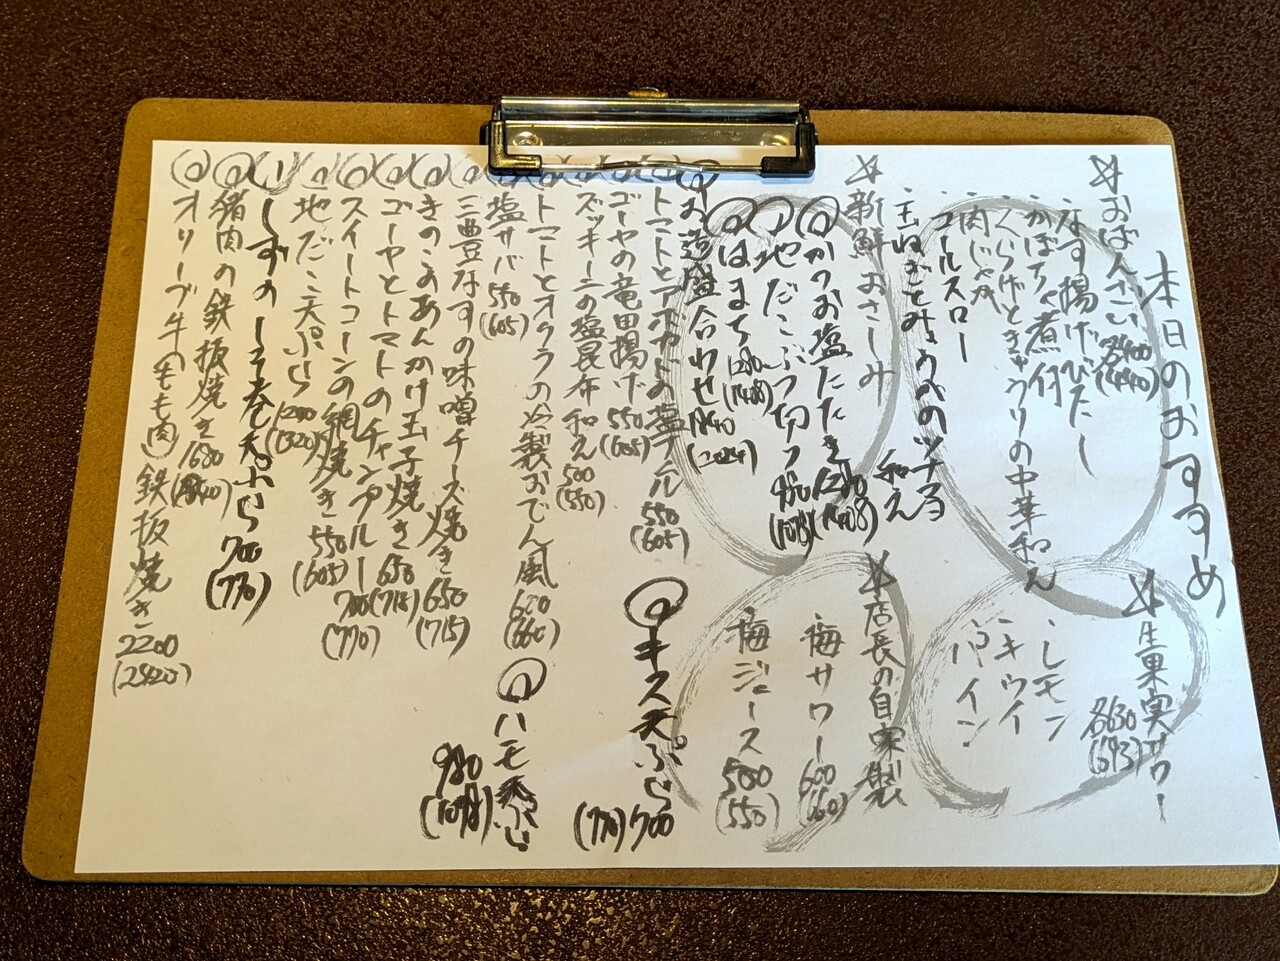 本日のおすすめ
☆おばんざい 各400
(440)
・なす揚げびたし
・かぼちゃ煮付
・くらげときゅうりの中華和え
・肉じゃが
・コールスロー
・玉ねぎとみょうがのツナマヨ和え
☆生果実サワー
各630
(693)
・レモン
・キウイ
・パイン
☆新鮮おさしみ
かつお塩たたき 1280
(1408)
地だこぶつ切り 980
(1078)
はまち 1280
(1408)
お造り盛合わせ 1840
(2024)
☆店長の自家製
・梅サワー 600
(660)
・梅ジュース 500
(550)
トマトとアボカドの塩ナムル 550
(605)
ゴーヤの竜田揚げ 550
(605)
キス天ぷら 700
(770)
ズッキーニの塩昆布和え 500
(550)
トマトとオクラの冷製おでん風 600
(660)
塩サバ 550
(605)
ハモ天ぷら
980
(1078)
三豊なすの味噌チーズ焼き 650
(715)
きのこあんかけ玉子焼き 650
(715)
ゴーヤとトマトのチャンプルー 700
(770)
スイートコーンの網焼き 550
(605)
地だこ天ぷら 1200
(1320)
しずのしそ巻天ぷら 700
(770)
猪肉の鉄板焼き 1680
(1840)
オリーブ牛(モモ肉)鉄板焼き 2200
(2420)